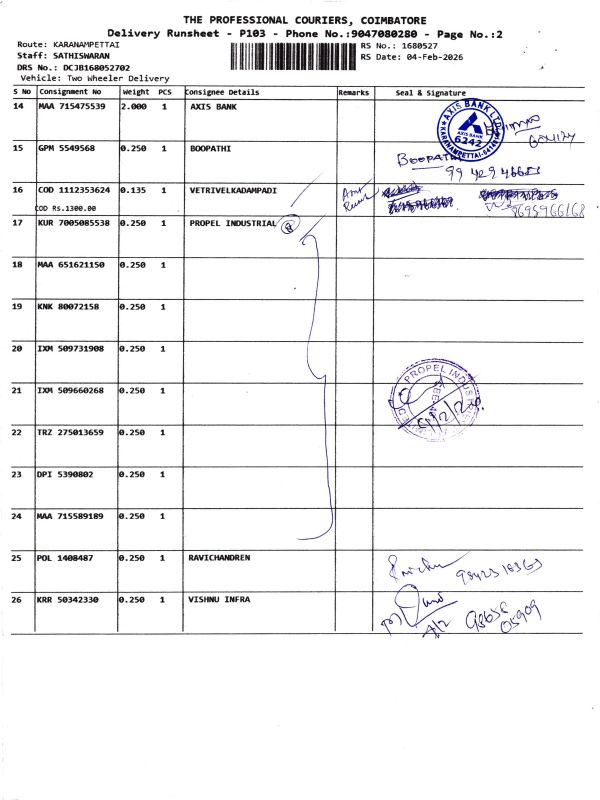 THE PROFESSIONAL COURIERS, COIMBATORE
Delivery Runsheet - P103 - Phone No.:9047080280 - Page No.:2
Route: KARANAMPETTAI
RS No.: 1680527
Staff: SATHISWARAN
RS Date: 04-Feb-2026
DRS No.: DCJB168052702
Vehicle: Two Wheeler Delivery
S No Consignment No Weight PCS Consignee Details Remarks Seal & Signature
14 MAA 715475539 2.000 1 AXIS BANK
AXIS BANK LTD
AXIS BANK
6242
KARANAMPETTAI
15 GPM 5549568 0.250 1 BOOPATHI
BOOPATHI
16 COD 1112353624 0.135 1 VETRIVELKADAMPADI
COD Rs.1300.00
8695966168
17 KUR 7005085538 0.250 1 PROPEL INDUSTRIAL 8
18 MAA 651621150 0.250 1
19 KNK 80072158 0.250 1
20 IXM 509731908 0.250 1
PROPEL INDUSTRIES
21 IXM 509660268 0.250 1
22 TRZ 275013659 0.250 1
23 DPI 5390802 0.250 1
24 MAA 715589189 0.250 1
25 POL 1408487 0.250 1 RAVICHANDREN
9842518363
26 KRR 50342330 0.250 1 VISHNU INFRA
98658
05909